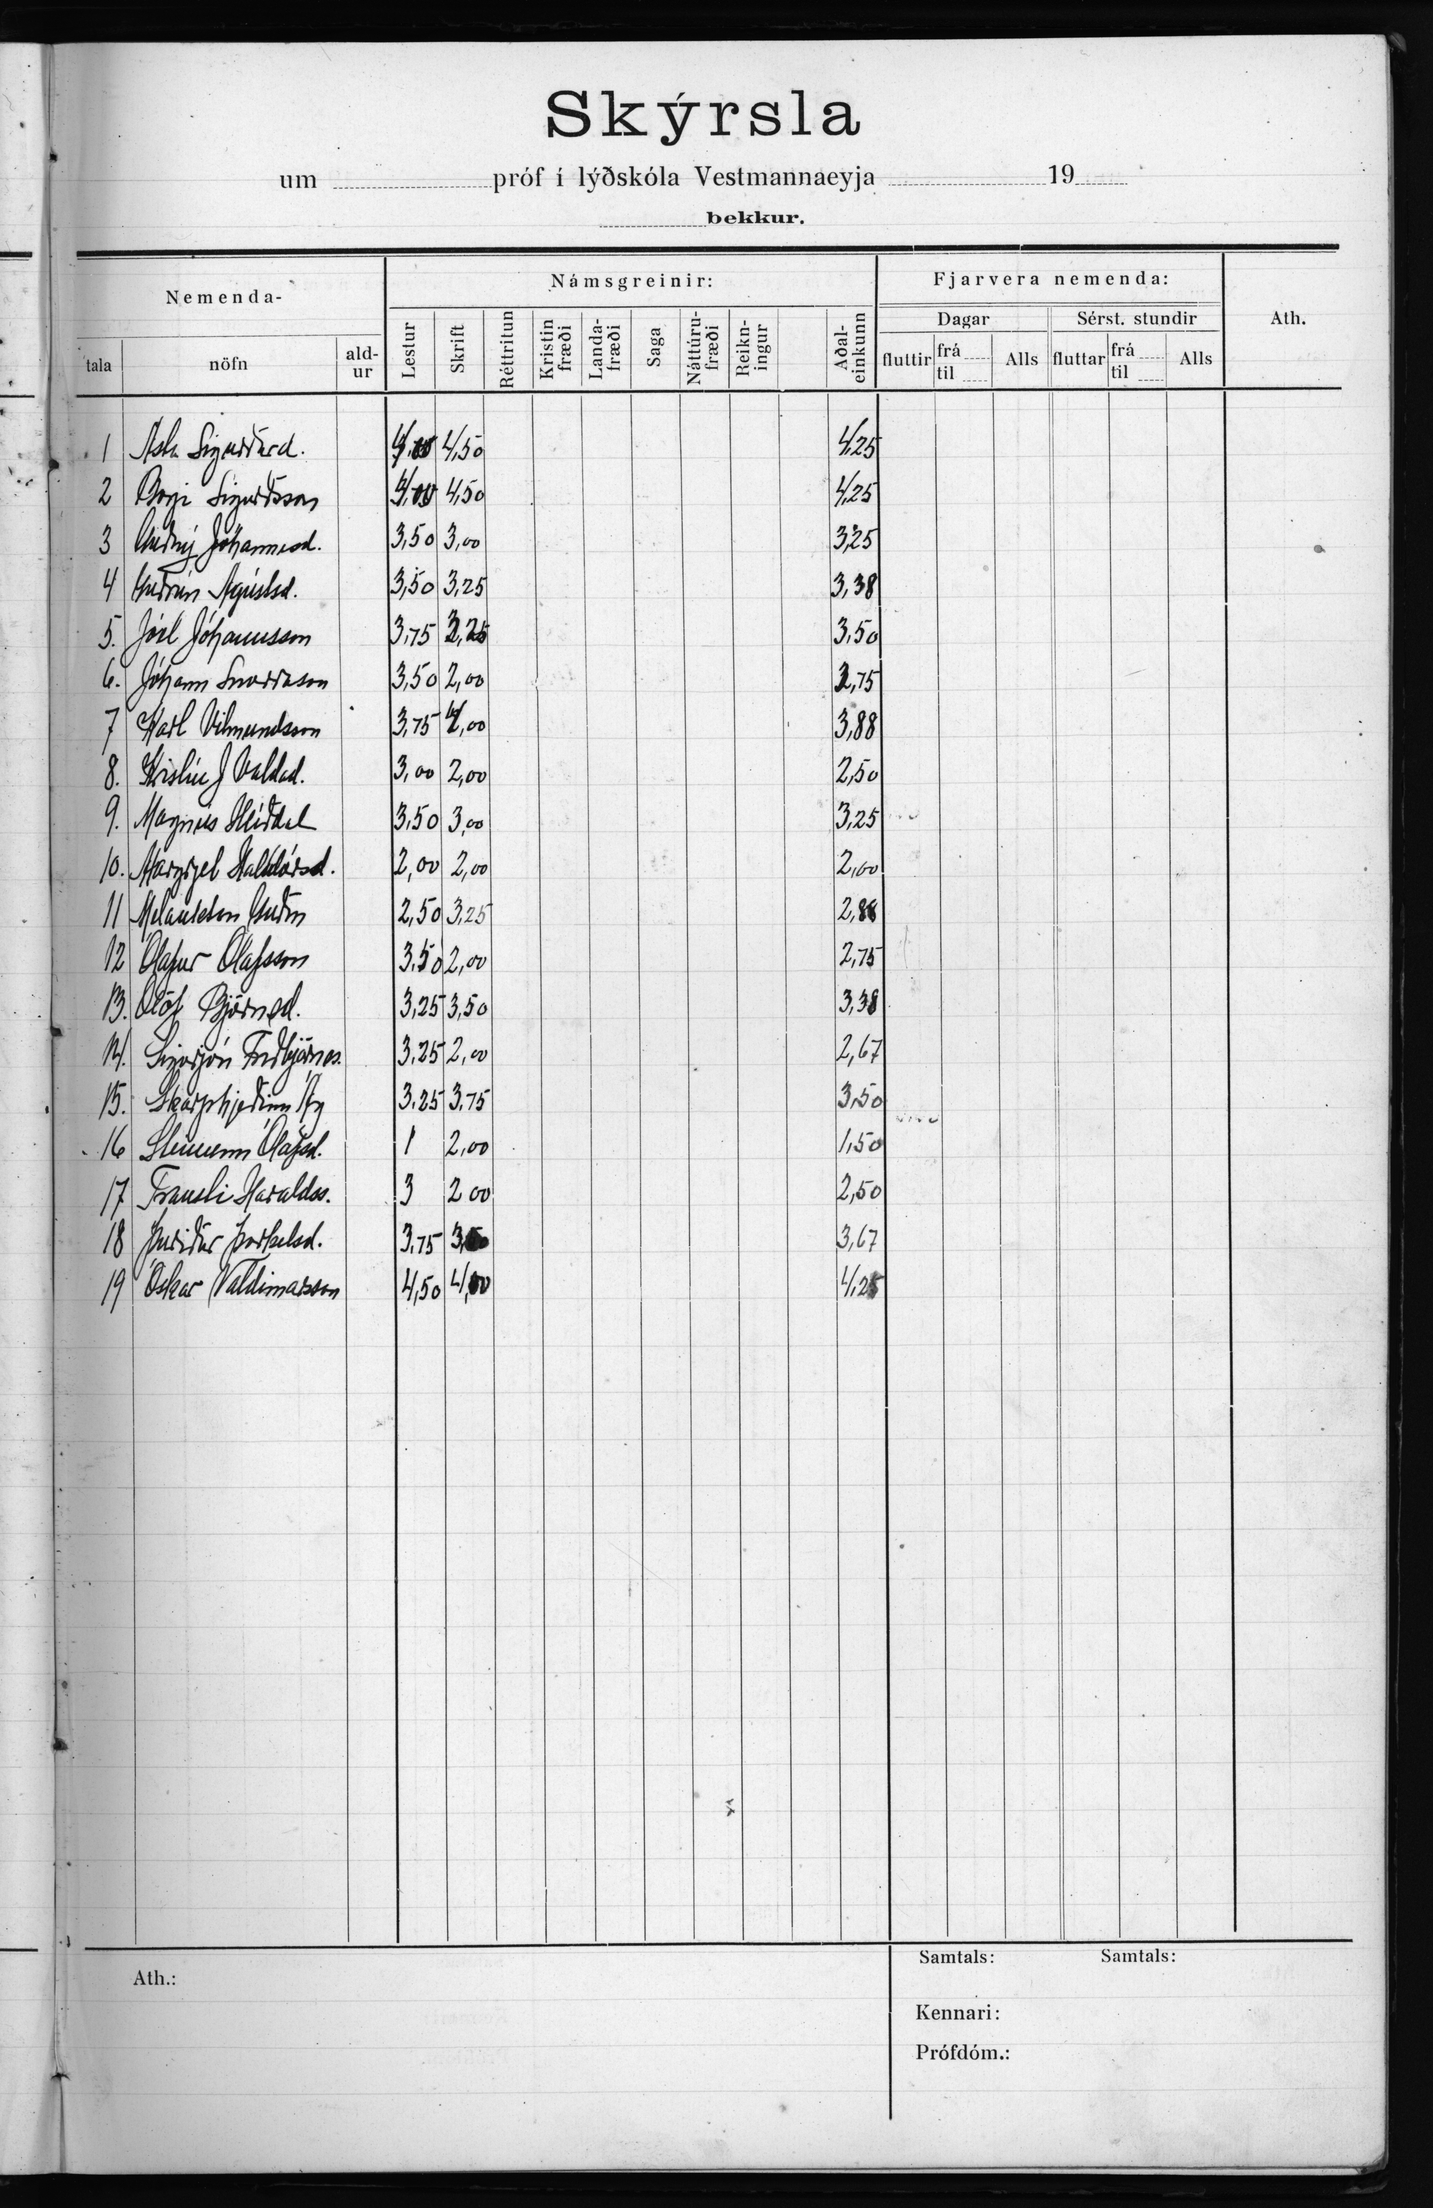 Skýrsla
um próf í lýðskóla Vestmannaeyja 19
bekkur.
Nemenda- Námsgreinir: Fjarvera nemenda: Ath.
Dagar Sérst. stundir
tala nöfn ald-ur Lestur Skrift Réttritun Kristin fræði Landa-fræði Saga Náttúru-fræði Reikn-ingur Aðal-einkunn fluttir frá til Alls fluttar frá til Alls
1 Ásta Sigurðard. 4,00 4,50 4,25
2 Bogi Sigurðsson 4,00 4,50 4,25
3 Guðný Jóhannesd. 3,50 3,00 3,25
4 Guðrún Ágústsd. 3,50 3,25 3,38
5. Jóel Jóhannsson 3,75 3,25 3,50
6. Jóhann Snorrason 3,50 2,00 2,75
7 Karl Vilmundsson 3,75 4,00 3,88
8. Kristín J Valdad. 3,00 2,00 2,50
9. Magnús 3,50 3,00 3,25
10. Margrjet Halldórsd. 2,00 2,00 2,00
11 2,50 3,25 2,88
12 Ólafur Ólafsson 3,50 2,00 2,75
13. Ólöf Björnsd. 3,25 3,50 3,38
14. Sigurjón Friðbjörnss. 3,25 2,00 2,67
15. Skarphjeðinn 3.25 3,75 3,50
16 Steinunn Ólafsd. 1 2,00 1,50
17 Trausti Haraldss. 3 2 00 2,50
18 Þuríður Þorkelsd. 3,75 3,67
19 Óskar Valdimarsson 4,50 4,00 4,25
Ath.: Samtals: Samtals:
Kennari:
Prófdóm.: